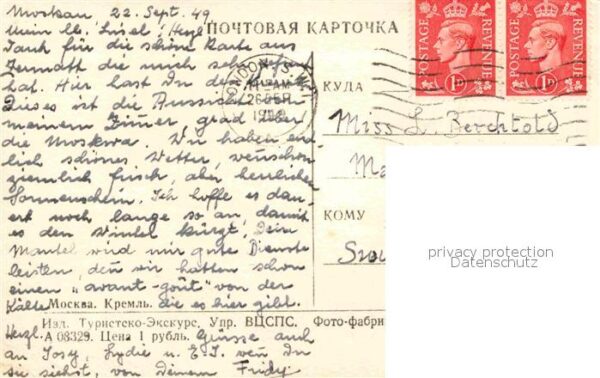 Moskau, 22. Sept. 49
Mein lb. Liesel! Herzl.
Dank für die schöne Karte aus
Zermatt die mich sehr gefreut
hat. Hier hast Du den
Dies ist die Aussicht von
meinem Zimmer grad über
die Moskwa. Wir haben end-
lich schönes Wetter, wenn schon
ziemlich frisch, aber herrlichen
Sonnenschein. Ich hoffe es dau-
ert noch lange so an, damit
es den Winter kürzt. Dein
Mantel wird mir gute Dienste
leisten, denn wir hatten schon
einen "avant-goût" von der
Kälte die es hier gibt.
Herzl. Grüsse auch
an Josy, Lydie u. E.J. wenn Du
sie siehst, von Deinem Fridy
ПОЧТОВАЯ КАРТОЧКА
Москва. Кремль.
Изд. Туристско-Экскурс. Упр. ВЦСПС. Фото-фабри
А 08329. Цена 1 рубль.
POSTAGE REVENUE
1D
POSTAGE REVENUE
1D
LONDON
AM
26 SEP
КУДА
Miss L. Berchtold
Ma
КОМУ
privacy protection
Datenschutz